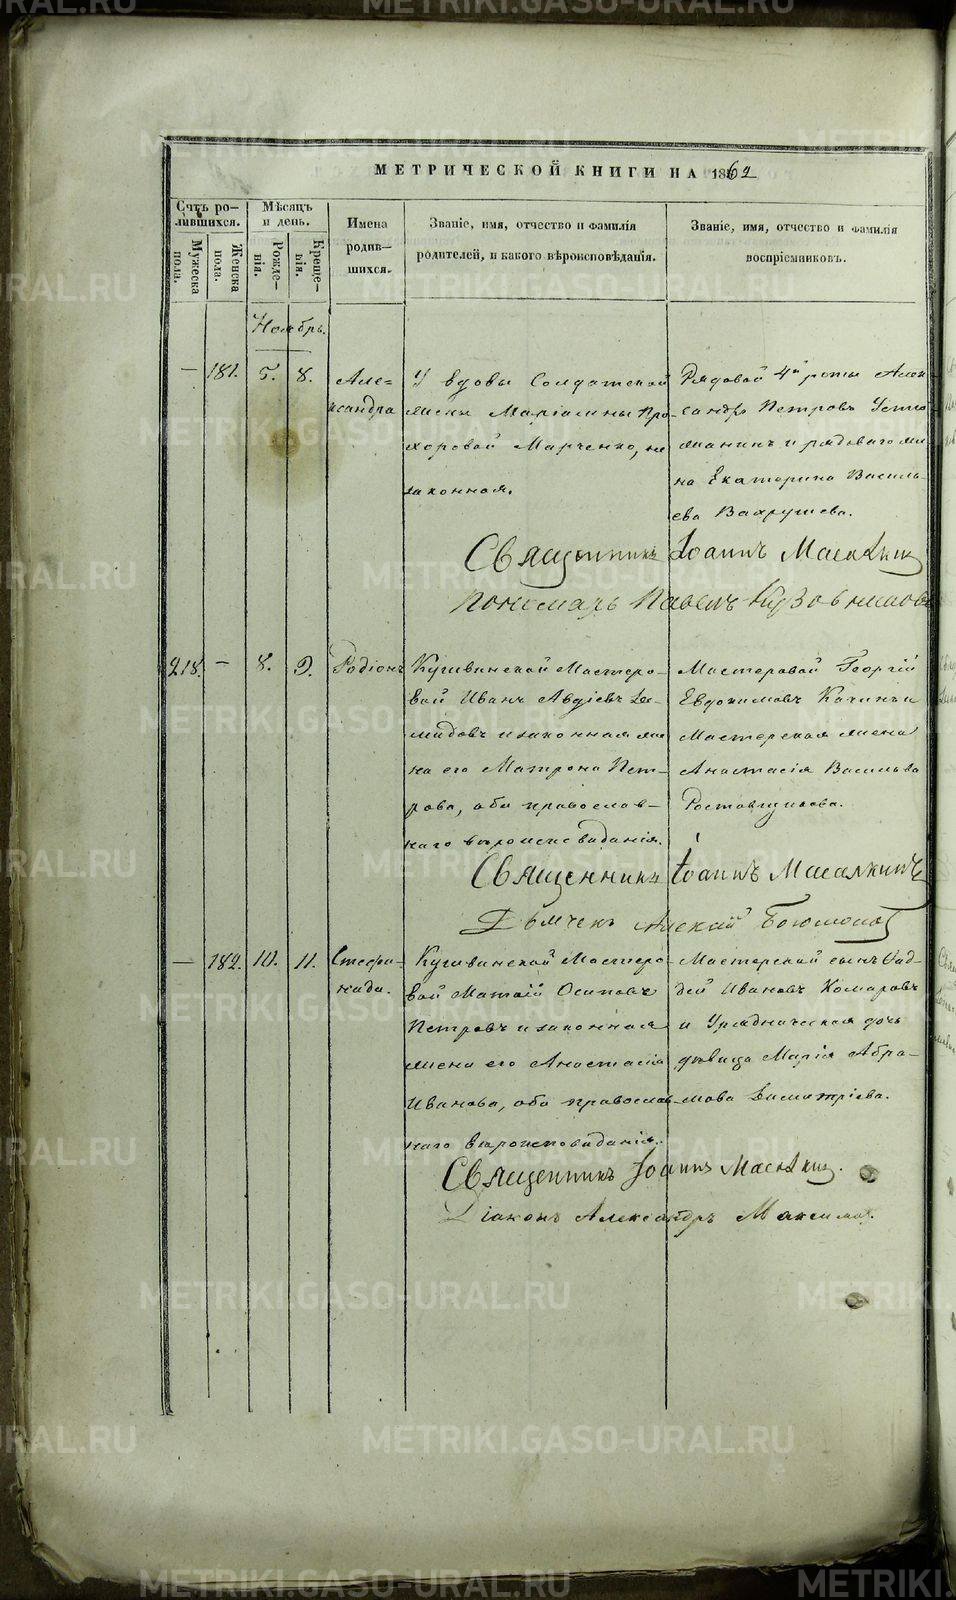 МЕТРИЧЕСКОЙ КНИГИ НА 1862
Счтъ ро-
дившихся.
Мѣсяцъ
и день.
Мужеска
пола.
Женска
пола.
Рожде-
нія.
Креще-
нія.
Имена
родив-
шихся.
Званіе, имя, отчество и фамилія
родителей, и какого вѣроисповѣданія.
Званіе, имя, отчество и фамилія
воспріемниковъ.
Ноябрь.
— 181. 5. 8.
Але-
ксандра
У вдовы Солдатской
жены Маріанны Про-
хоровой Марченко, не
законная.
Рядовой 4й роты Алек-
сандръ Петровъ
и рядоваго же-
на Екатерина Василь-
ева Вахрушева.
Священникъ Іоаннъ Масалкинъ
Пономарь Павелъ Кузовниковъ
218. — 8. 9.
Родіонъ
Кушвинской Мастеро-
вой Иванъ Авдіевъ Де-
мидовъ и законная же-
на его Матрона Пет-
рова, оба православ-
наго вѣроисповѣданія.
Мастеровой Георгій
Евдокимовъ Качинъ и
Мастерская жена
Анастасія Васильева
Ростовщикова.
Священникъ Іоаннъ Масалкинъ
Дьячекъ Алексій
— 182. 10. 11.
Стефа-
нида.
Кушвинской Мастеро-
вой Матѳій Осиповъ
Петровъ и законная
жена его Анастасія
Иванова, оба православ-
наго вѣроисповѣданія.
Мастерской сынъ Ѳад-
дей Ивановъ Комаровъ
и Урядническая дочь
дѣвица Марія Абра-
мова Димитріева.
Священникъ Іоаннъ Масалкинъ.
Діаконъ Александръ Максимов.
METRIKI.GASO-URAL.RU